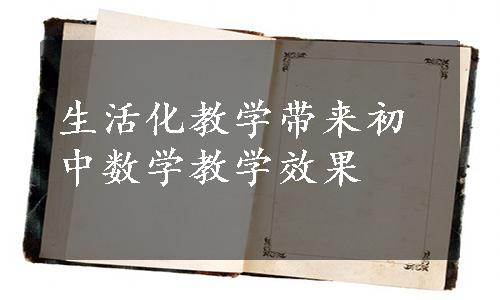 生活化教学带来初
中数学教学效果